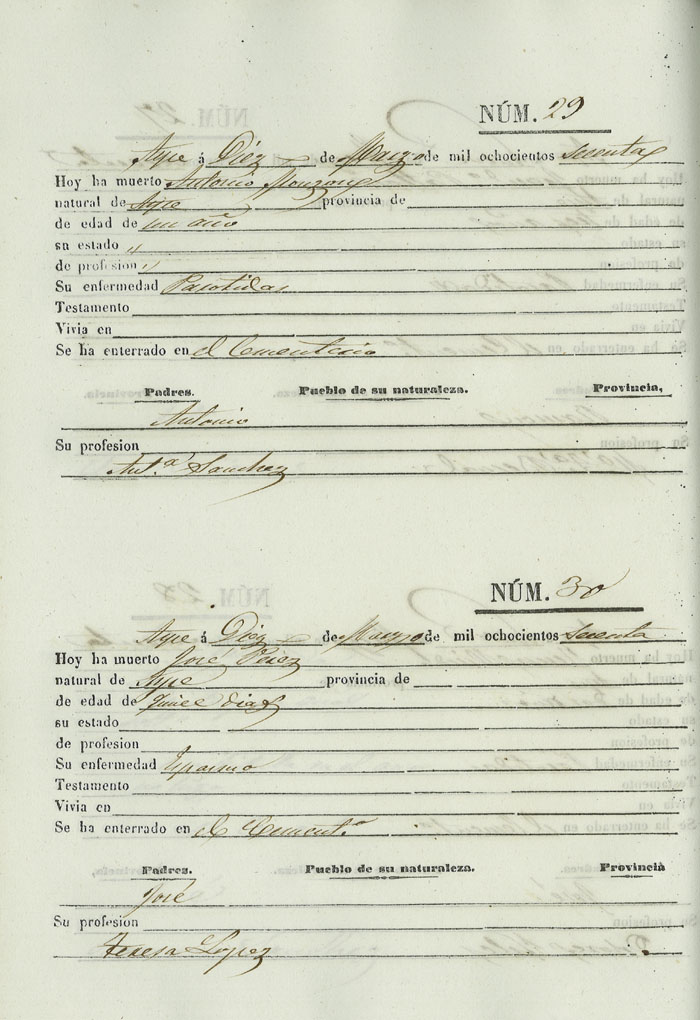 NÚM. 29
Aspe á Diez de Marzo de mil ochocientos sesenta
Hoy ha muerto Antonio
natural de Aspe provincia de
de edad de un año
su estado "
de profesion "
Su enfermedad Parotidas
Testamento
Vivia en
Se ha enterrado en el Cementerio
Padres. Pueblo de su naturaleza. Provincia,
Antonio
Su profesion
Ant.ª Sanchez
NÚM. 30
Aspe á Diez de Marzo de mil ochocientos sesenta
Hoy ha muerto José Perez
natural de Aspe provincia de
de edad de dias
su estado
de profesion
Su enfermedad Espasmo
Testamento
Vivia en
Se ha enterrado en el Cement.o
Padres. Pueblo de su naturaleza. Provincia
José
Su profesion
Teresa Lopez